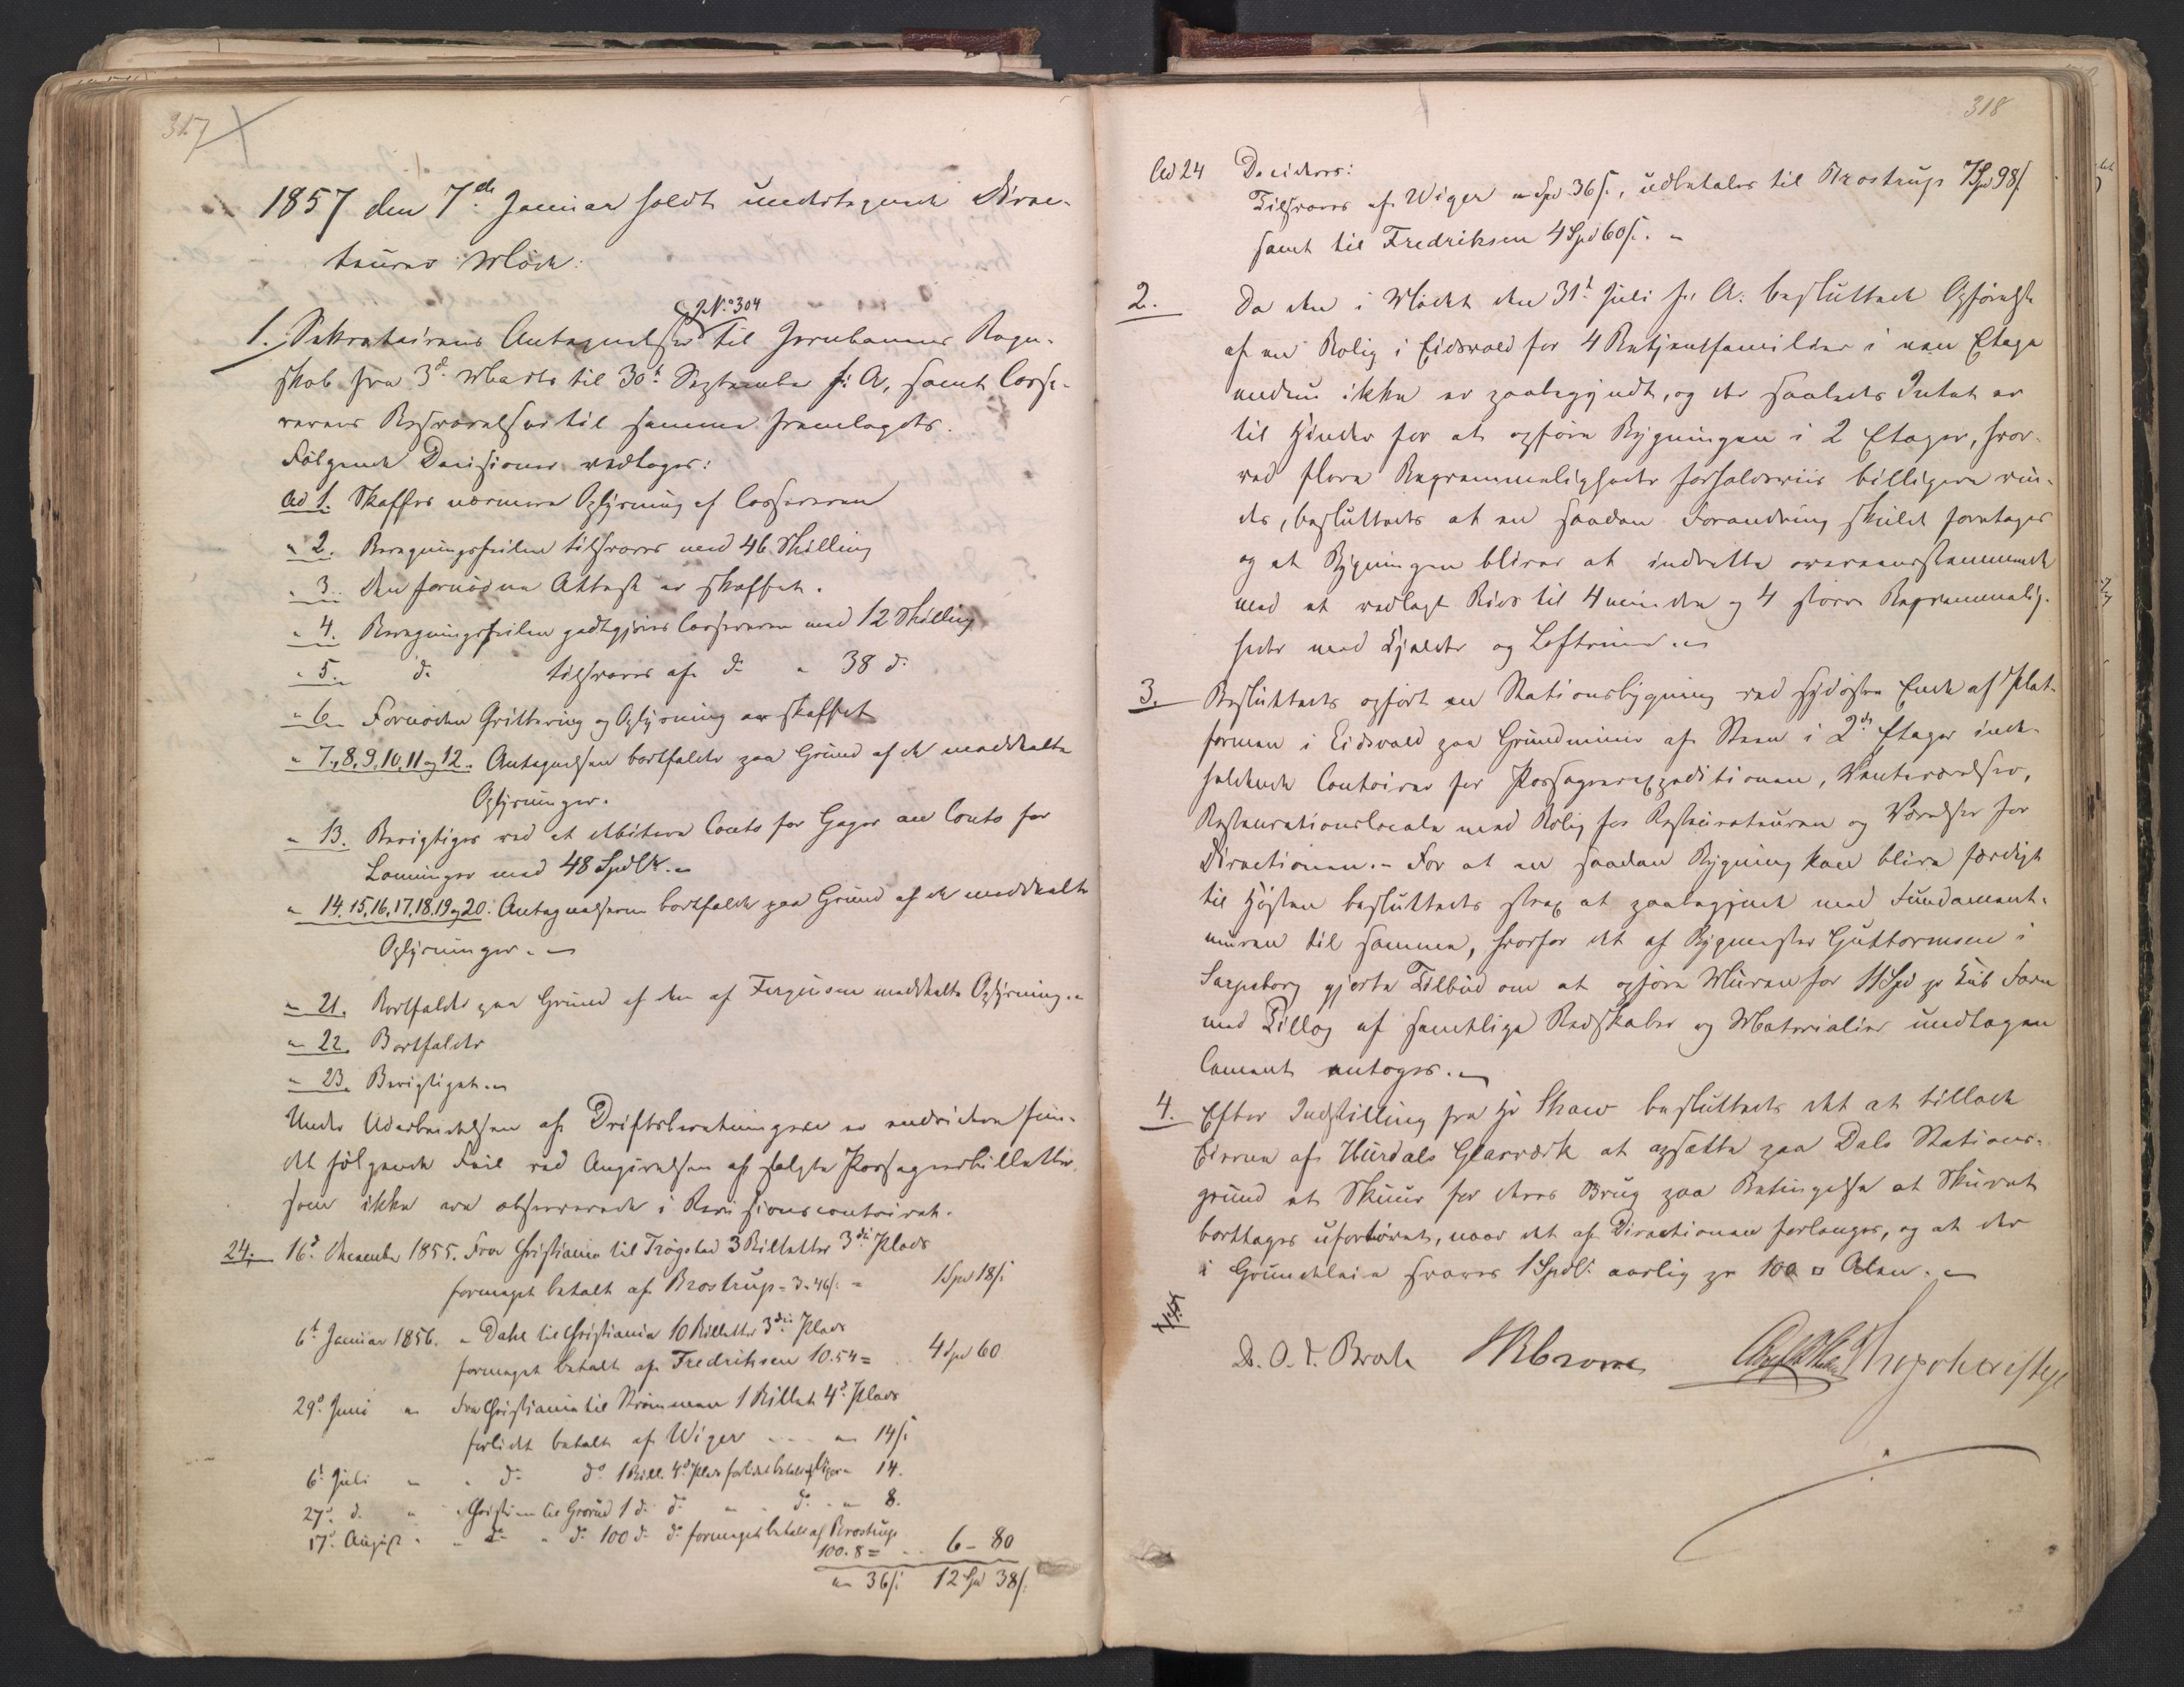 317
1857 den 7de Januar holdt undertegnede Direc-
teurer Møde:
J. No 304
1. Sekretairens Antegnelser til Jernbanens Regn-
skab fra 3d Marts til 30t September f: A, samt Casse-
rerens Besvarelser til samme fremlagdes.
Følgende Decisioner vedtoges:
Ad 1. Skaffes nærmere Oplysning af Cassereren
" 2. Beregningsfeilen tilsvares med 46 Skilling
" 3. Den fornødne Attest er skaffet.
" 4. Beregningsfeilen godtgjøres Cassereren med 12 Skilling
" 5. do tilsvares af do " 38 do
" 6. Fornøden Qvittering og Oplysning er skaffet
" 7, 8, 9, 10, 11 og 12. Antegnelsen bortfalder paa Grund af de meddeelte
Oplysninger.
" 13. Berigtiges ved at debitere Conto for Gager an Conto for
Lønninger med 48 Spdlr. "
" 14. 15, 16, 17, 18, 19 og 20. Antegnelserne bortfalde paa Grund af de meddeelte
Oplysninger. "
" 21. Bortfalder paa Grund af den af Ferguson meddeelte Oplysning. "
" 22. Bortfalder
" 23. Berigtiget. "
Under Udarbeidelsen af Driftsberetningen er endvidere fun-
det følgende Feil ved Angivelsen af solgte Passageerbilletter,
som ikke ere observerede i Revisionscontoiret.
24. 16d December 1855. Fra Christiania til Trøgstad 3 Billetter 3die Plads
formeget betalt af Brostrup " 3 " 46 s. = 1 Spd 18 s.
6t Januar 1856. " Dahl til Christiania 10 Billetter 3die Plads
formeget betalt af Fredriksen 10. 54 = 4 Spd 60
29d Juni " Fra Christiania til Strømmen 1 Billet 4d Plads
forlidet betalt af Wiger " 14 s.
6t Juli " " do do 1 Bill. 4d Plads forlidet betalt af Wiger " 14.
27d do " " Christiania til Grorud 1 do do " do " 8.
17d August " " do " do 100 do do formeget betalt af Brostrup
100. 8 = 6 - 80
" 36 s. 12 Spd 38 s.
318
Ad 24 Decideres:
Tilsvares af Wiger " Spd 36 s., udbetales til Brostrup 7 Spd 98 s.
samt til Fredriksen 4 Spd 60 s. "
2. Da den i Mødet den 31t Juli f. A. besluttede Opførelse
af en Bolig i Eidsvold for 4 Betjentfamilier i een Etage
endnu ikke er paabegyndt, og der saaledes Intet er
til Hinder for at opføre Bygningen i 2 Etager, hvor-
ved flere Beqvemmeligheder forholdsviis billigere vin-
des, besluttedes at en saadan Forandring skulde foretages
og at Bygningen bliver at indrette overeensstemmende
med et vedlagt Rids til 4 mindre og 4 større Beqvemmelig-
heder med Kjelder og Loftrum. "
3. Besluttedes opført en Stationsbygning ved sydøstre Ende af Plat-
formen i Eidsvold paa Grundmuur af Steen i 2de Etager inde-
holdende Contoirer for Passagerexpeditionen, Venteværelser,
Restaurationslocale med Bolig for Restaurateuren og Værelser for
Directionen. " For at en saadan Bygning kan blive færdigt
til Høsten besluttedes strax at paabegynde med Fundament-
muren til samme, hvorfor det af Bygmester Guttormsen i
Sarpsborg gjorte Tilbud om at opføre Muren for 11 Spd pr Kub Favn
med Tillæg af samtlige Redskaber og Materialier undtagen
Cement antoges. "
4. Efter Indstilling fra Hr Shaw besluttedes det at tillade
Eieren af Hurdals Glasværk at opsætte paa Dals Stations-
grund et Skuur for deres Brug paa Betingelse at Skuret
borttages ufortøvet, naar det af Directionen forlanges, og at der
i Grundleie svares 1 Spdlr aarlig pr 100 □ Alen. "
D. O. J. Broch